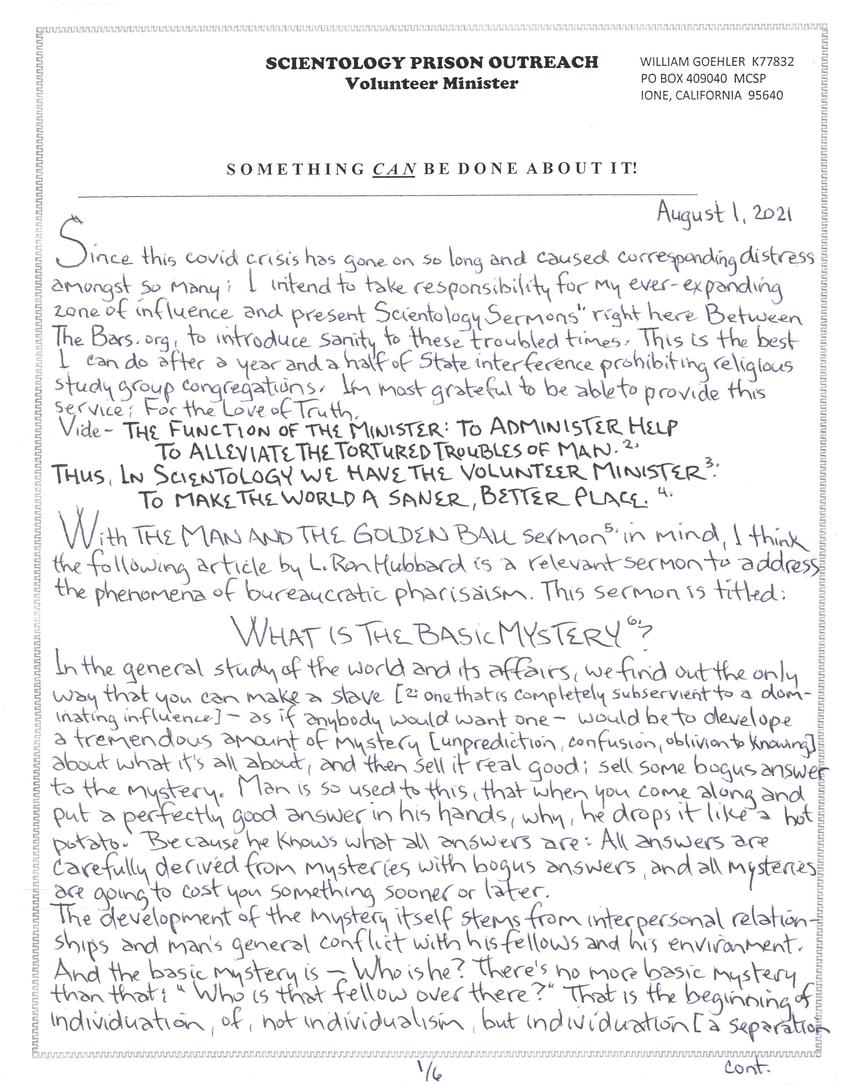 SCIENTOLOGY PRISON OUTREACH
Volunteer Minister
WILLIAM GOEHLER K77832
PO BOX 409040 MCSP
IONE, CALIFORNIA 95640
SOMETHING CAN BE DONE ABOUT IT!
August 1, 2021
Since this covid crisis has gone on so long and caused corresponding distress
amongst so many; I intend to take responsibility for my ever-expanding
zone of influence and present Scientology Sermons" right here Between
The Bars.org, to introduce sanity to these troubled times. This is the best
I can do after a year and a half of State interference prohibiting religious
study group congregations. I'm most grateful to be able to provide this
service; For the Love of Truth.
Vide- THE FUNCTION OF THE MINISTER: TO ADMINISTER HELP
TO ALLEVIATE THE TORTURED TROUBLES OF MAN. 2.
THUS, IN SCIENTOLOGY WE HAVE THE VOLUNTEER MINISTER 3.
TO MAKE THE WORLD A SANER, BETTER PLACE. 4.
With THE MAN AND THE GOLDEN BALL sermon 5. in mind, I think
the following article by L. Ron Hubbard is a relevant sermon to address
the phenomena of bureaucratic pharisaism. This sermon is titled:
WHAT IS THE BASIC MYSTERY 6.?
In the general study of the world and its affairs, we find out the only
way that you can make a slave [2: one that is completely subservient to a dom-
inating influence] - as if anybody would want one - would be to develope
a tremendous amount of mystery [unprediction, confusion, oblivion to knowing]
about what it's all about, and then sell it real good; sell some bogus answer
to the mystery. Man is so used to this, that when you come along and
put a perfectly good answer in his hands, why, he drops it like a hot
potato. Because he knows what all answers are: All answers are
carefully derived from mysteries with bogus answers, and all mysteries
are going to cost you something sooner or later.
The development of the mystery itself stems from interpersonal relation-
ships and man's general conflict with his fellows and his environment.
And the basic mystery is - Who is he? There's no more basic mystery
than that: "Who is that fellow over there?" That is the beginning of
individuation, of, not individualism, but individuation [a separation
1/6
cont.